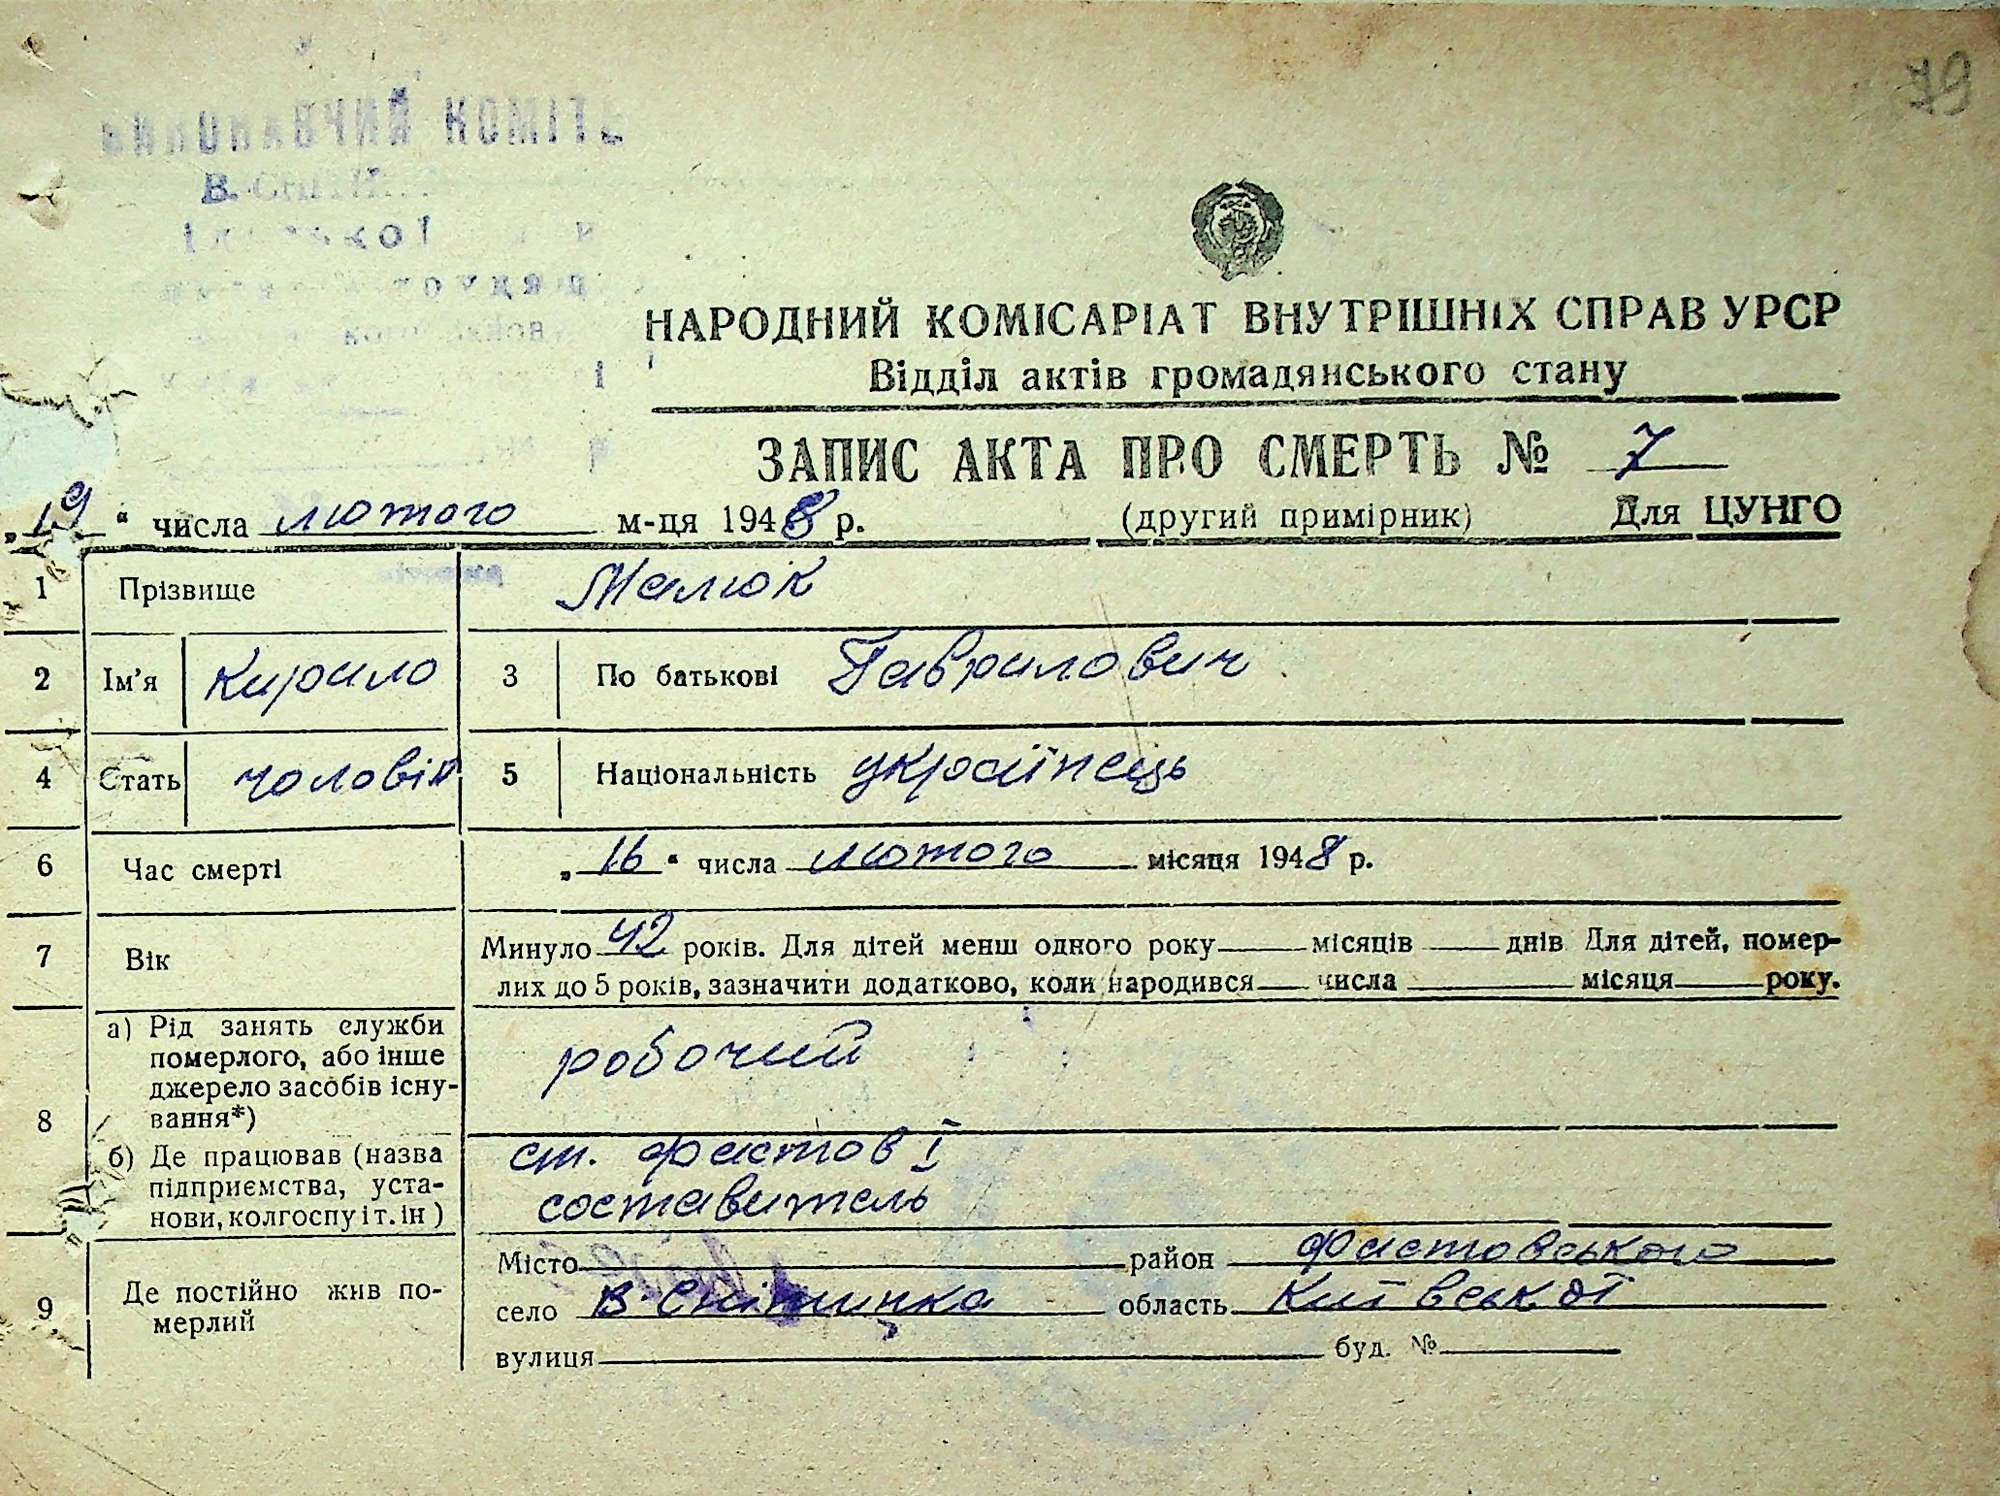 79
ВИКОНАВЧИЙ КОМІТЕ
НАРОДНИЙ КОМІСАРІАТ ВНУТРІШНІХ СПРАВ УРСР
Відділ актів громадянського стану
ЗАПИС АКТА ПРО СМЕРТЬ № 7
„19“ числа лютого м-ця 1948 р. (другий примірник) Для ЦУНГО
1 Прізвище Малюк
2 Ім’я Кирило 3 По батькові Гаврилович
4 Стать чоловік 5 Національність українець
6 Час смерті „16“ числа лютого місяця 1948 р.
7 Вік Минуло 42 років. Для дітей менш одного року місяців днів Для дітей, помер-
лих до 5 років, зазначити додатково, коли народився числа місяця року.
8 а) Рід занять служби
померлого, або інше
джерело засобів існу-
вання*)
робочий
б) Де працював (назва
підприємства, уста-
нови, колгоспу і т. ін )
ст. Фастов I
составитель
9 Де постійно жив по-
мерлий
Місто район Фастовського
село В-Снітинка область Київської
вулиця буд. №